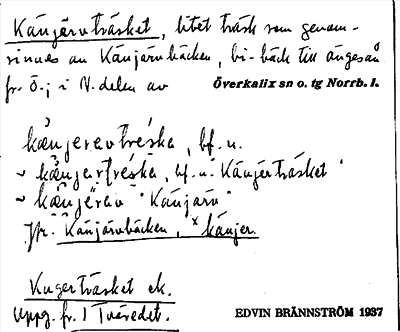 Känjärvträsket, litet träsk som genom-
rinnes av Känjärvbäcken, bi-bäck till ängesån
fr. Ö.; i N. delen av Överkalix sn o. tg Norrb. l.
kæ̀njeravtréska, bf. u.
~ kæ̀njertréska, bf. u. "Känjerträsket"
~ kæ̀njerav "Känjärv"
Jfr. Känjärvbäcken, ˣkänjer.
Kugerträsket ek.
Uppg. fr. 1 Tväredet. EDVIN BRÄNNSTRÖM 1937